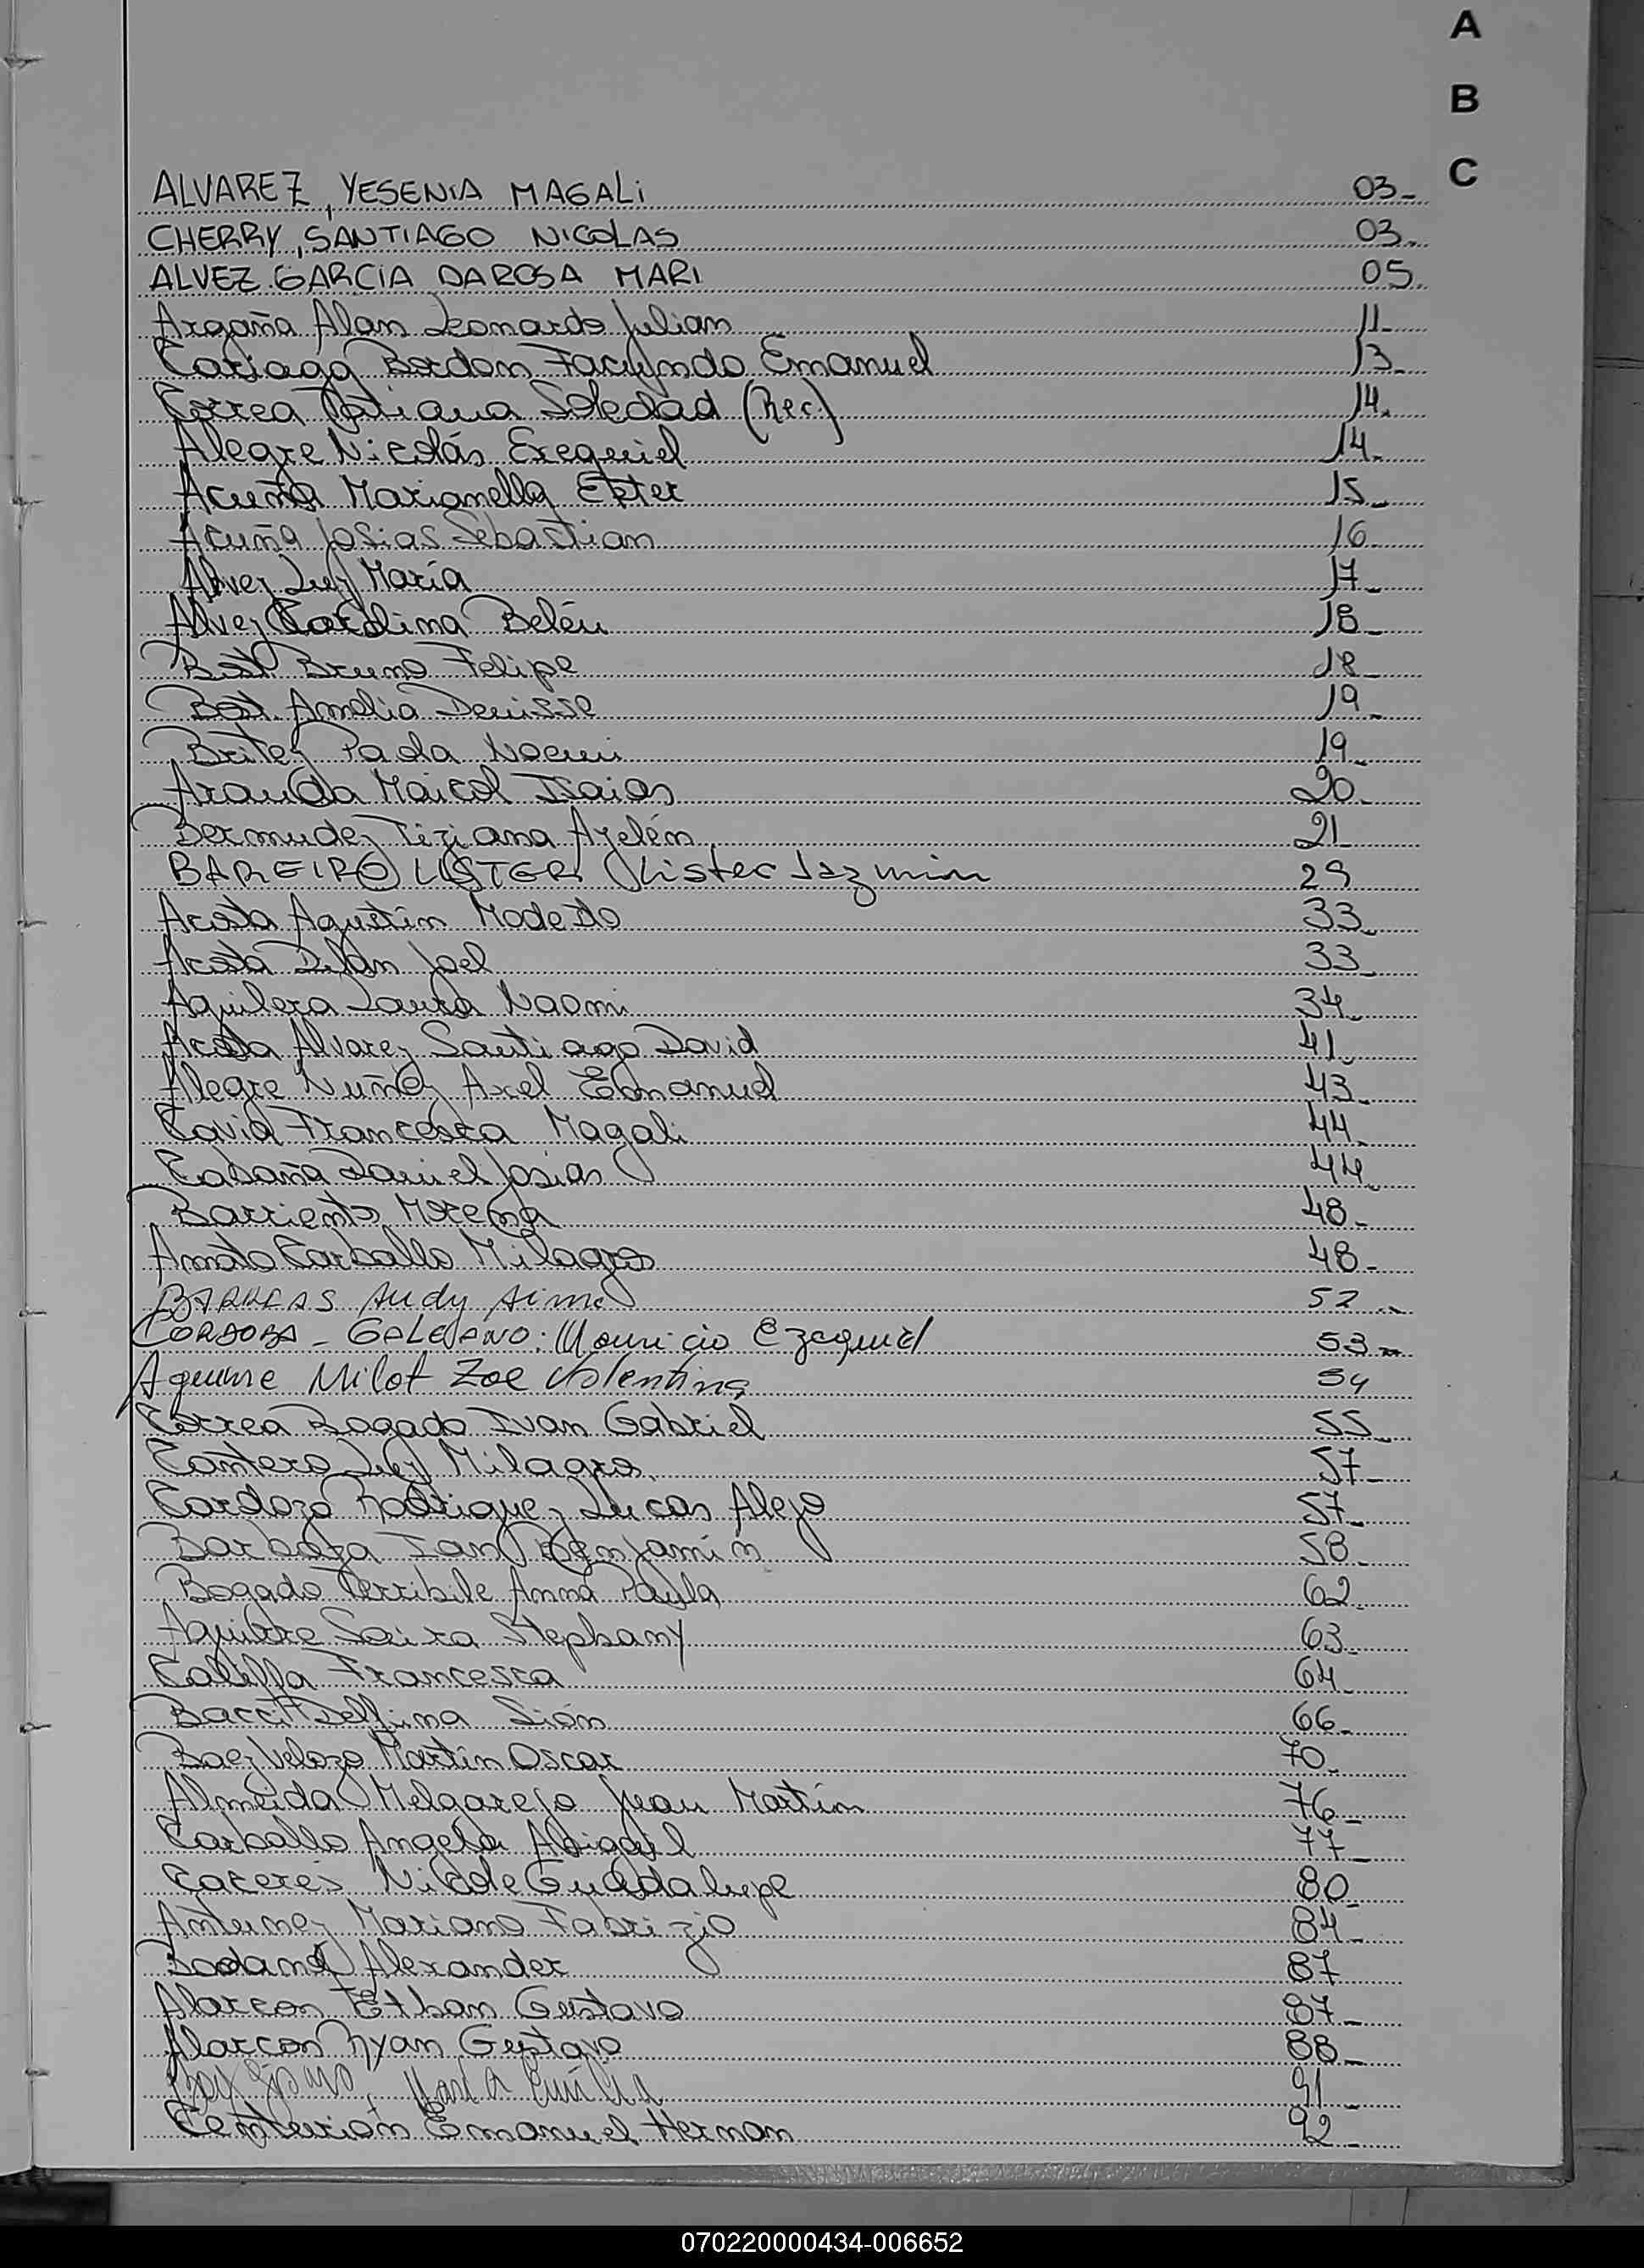 A
B
C
ALVAREZ, YESENIA MAGALI 03_
CHERRY, SANTIAGO NICOLAS 03_
ALVEZ GARCIA DAROSA MARI 05_
Argaña Alan Leonardo Julian 11_
Cariaga Bordon Facundo Emanuel 13_
Correa Tatiana Soledad (Rec) 14_
Alegre Nicolás Exequiel 14_
Acuña Marianella Ester 15_
Acuña Josias Sebastian 16_
Alvez Luz María 17_
Alvez Carolina Belén 18_
Bruno Felipe 18_
Amelia Denisse 19_
Britez Paola Noemi 19_
Aranda Maicol Isaias 20_
Bermudez Tiziana Ayelén 21_
BAREIRO LISTER Lister Jazmin 29
Acosta Agustín Modesto 33_
Acosta Dilan Joel 33_
Aguilera Laura Naomi 34_
Acosta Alvarez Santiago David 41_
Alegre Nuñez Axel Emanuel 43_
Cavia Francesca Magali 44_
Cabaña Daniel Josias 44_
Barrientos Morena 48_
Amato Carballo Milagros 48_
Andy Aime 52_
CORDOBA - GALEANO: Mauricio Ezequiel 53_
Aguirre Milot Zoe Valentina 54
Correa Bogado Ivan Gabriel 55_
Cantero Luz Milagros 57_
Cardozo Rodriguez Lucas Alejo 57_
Barboza Ian Benjamin 58_
Bogado Terribile Anna Paula 62_
Aguirre Saira Stephany 63_
Francesca 64_
Delfina Sión 66_
Baez Velozo Martín Oscar 70_
Almeida Melgarejo Juan Martín 76_
Carballo Angela Abigail 77_
Caceres Nicole Guadalupe 80_
Antunez Mariano Fabrizio 84_
Alexander 87
Alarcon Ethan Gustavo 87_
Alarcon Ryan Gustavo 88_
91_
Centurión Emanuel Hernan 92_
070220000434-006652